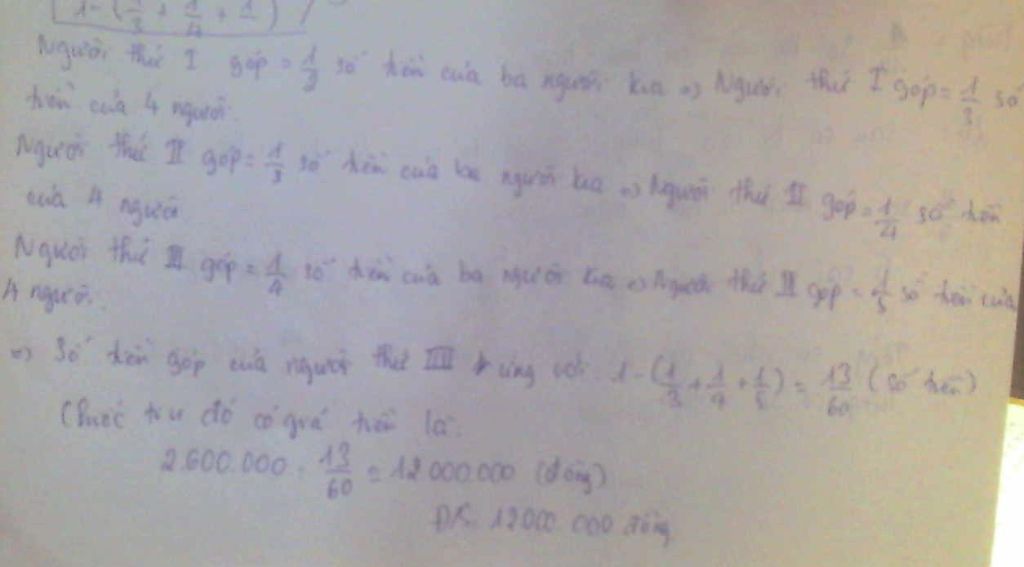 1 - (1/3 + 1/4 + 1
Người thứ I góp = 1/2 số tiền của ba người kia => Người thứ I góp = 1/3 số
tiền của 4 người.
Người thứ II góp = 1/3 số tiền của ba người kia => Người thứ II góp = 1/4 số tiền
của 4 người
Người thứ III góp = 1/4 số tiền của ba người kia => Người thứ III góp = 1/5 số tiền của
4 người.
=> Số tiền góp của người thứ IIII ứng với 1 - (1/3 + 1/4 + 1/5) = 13/60 (số tiền)
Chiếc tivi đó có giá tiền là:
2.600.000 : 13/60 = 12 000.000 (đồng)
ĐS: 12000.000 đồng